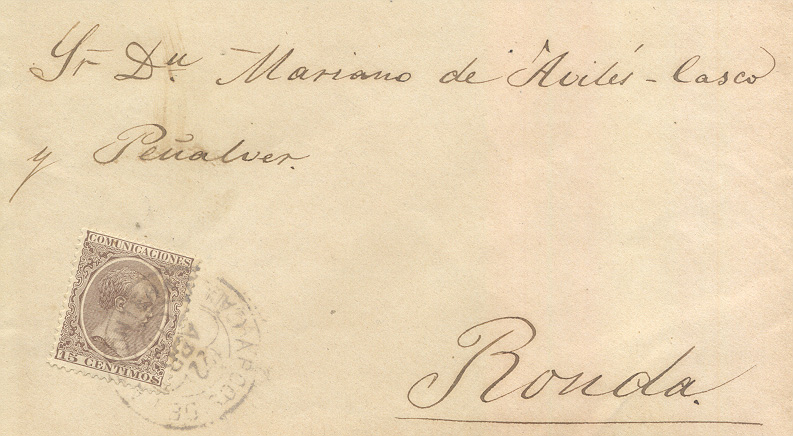 Sr Dn Mariano de Avilés - Casco
y Peñalver.
COMUNICACIONES
15 CENTIMOS
22
ABR
Ronda.